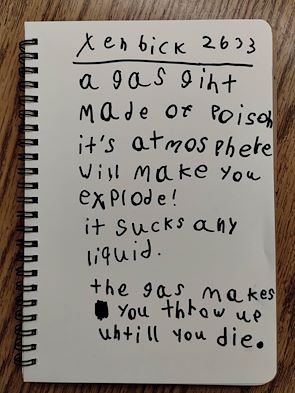 Xenbick 2633
a gas gint
made of Poison
it's atmosphere
will make you
explode!
it sucks any
liquid.
the gas makes
you throw up
untill you die.